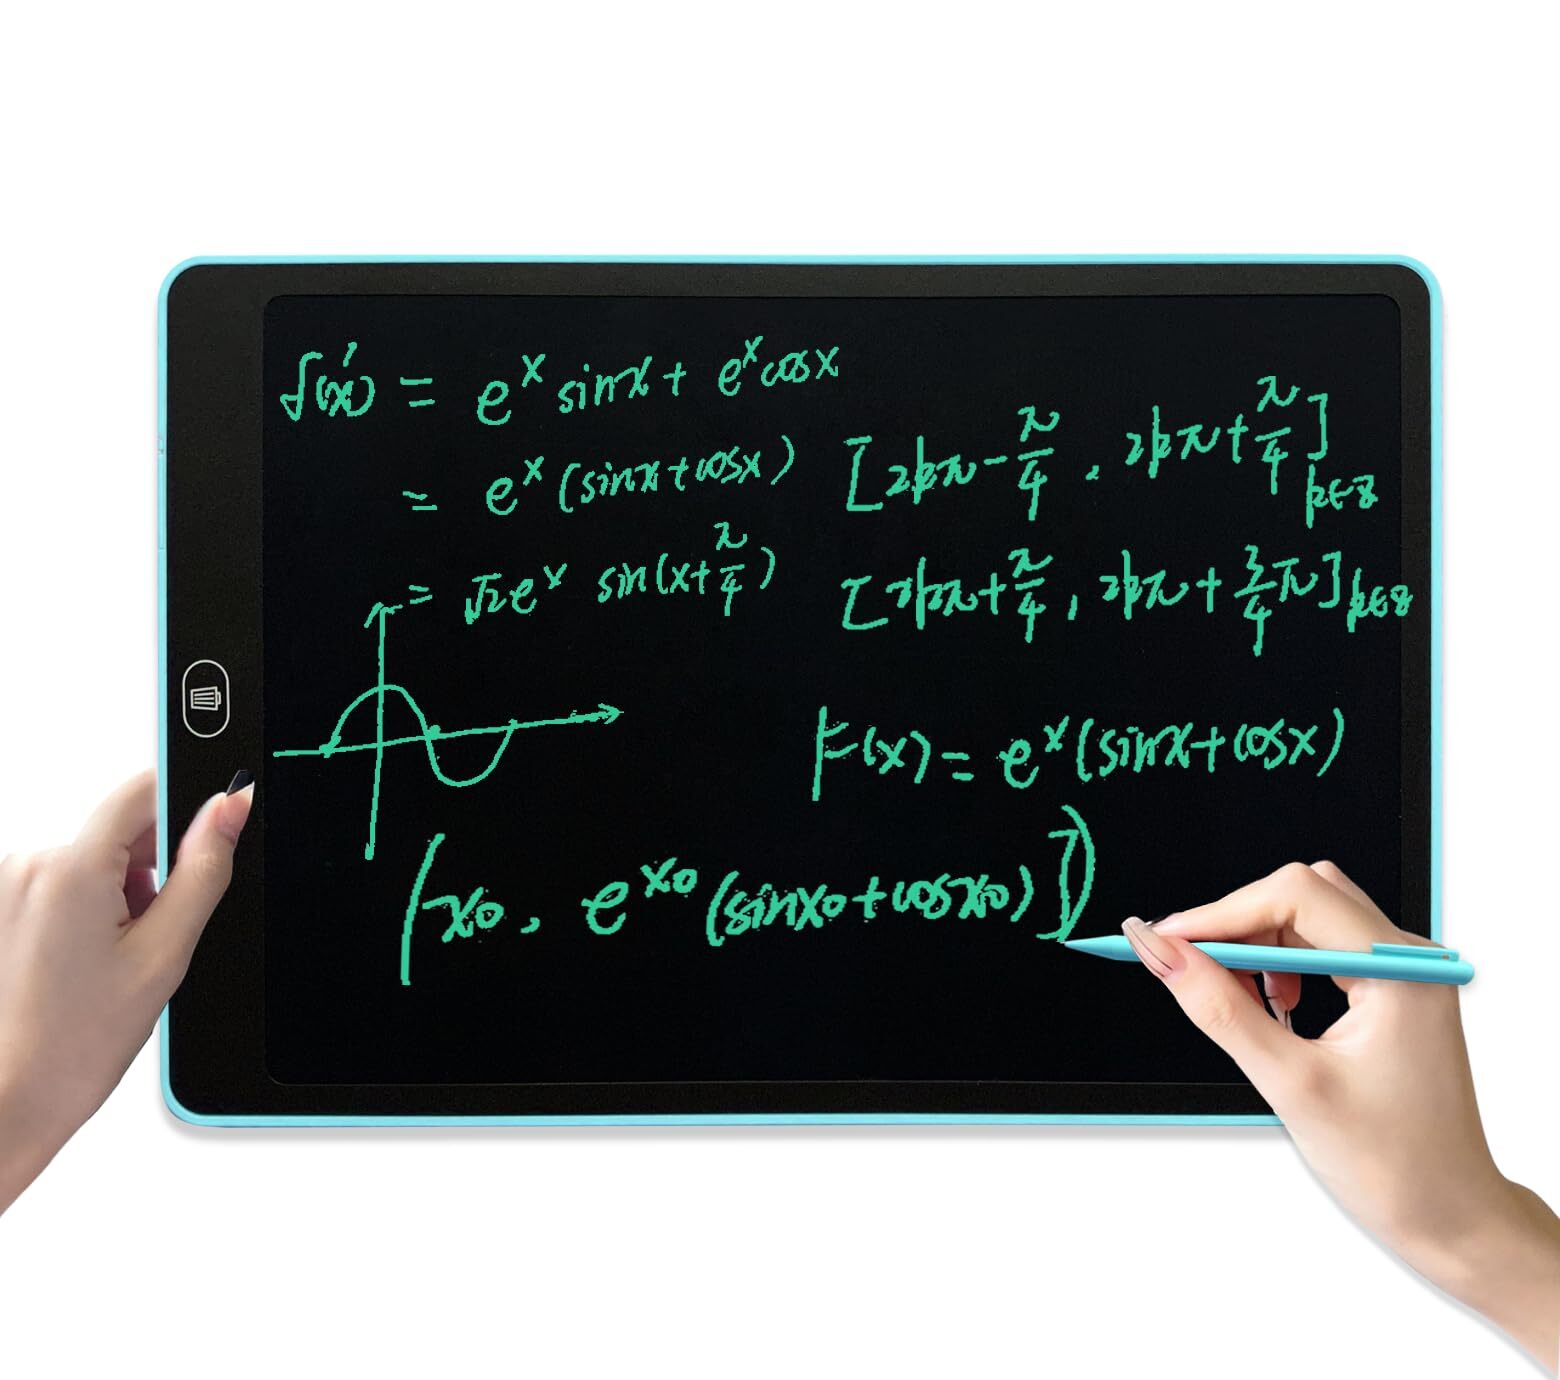 f'(x) = e^x sinx + e^x cosx
= e^x (sinx + cosx)
= √2 e^x sin(x + π/4)
[2kπ - π/4 , 2kπ + π/4] k∈Z
[2kπ + π/4 , 2kπ + 3/4 π] k∈Z
F(x) = e^x (sinx + cosx)
(x0 , e^x0 (sinx0 + cosx0)])